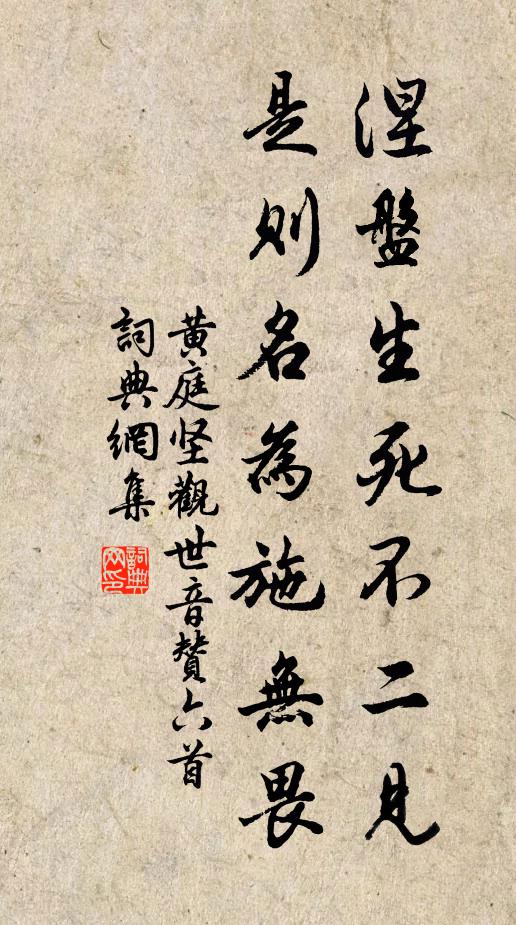 涅盤生死不二見
是则名為施無畏
黄庭坚觀世音赞六首
詞典網集
詞典网印